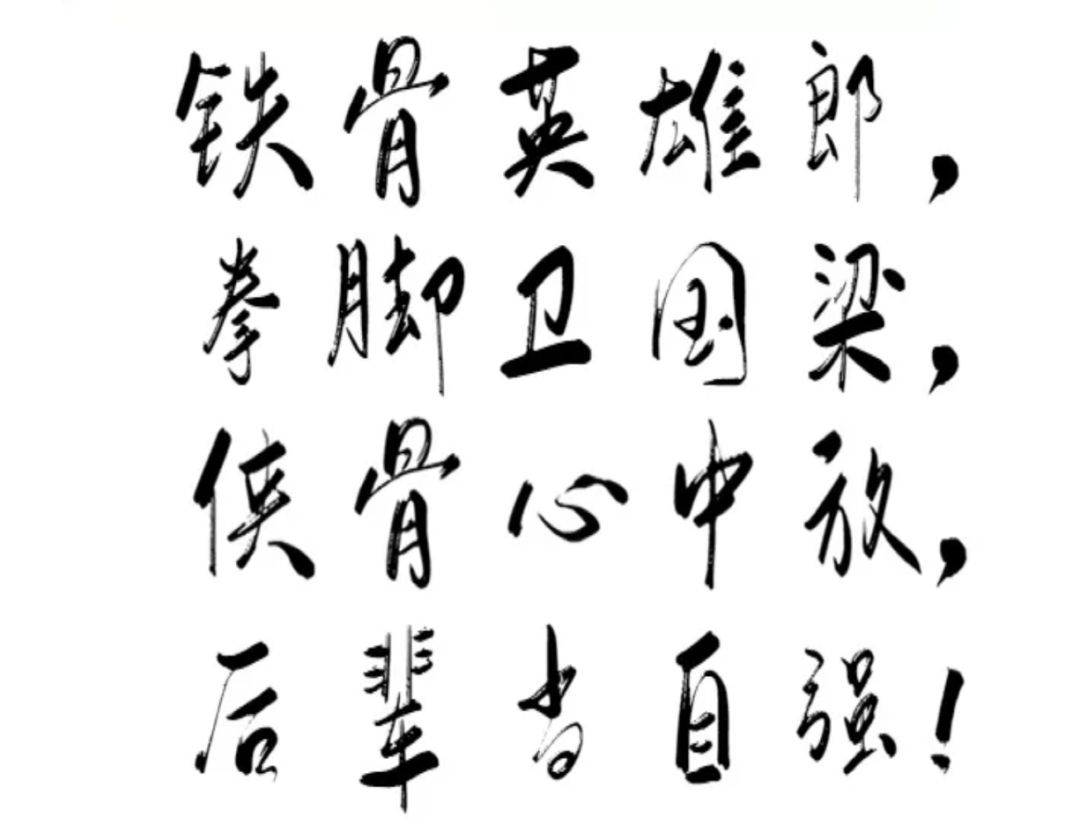 铁骨英雄郎，
拳脚卫国梁，
侠骨心中放，
后辈当自强！